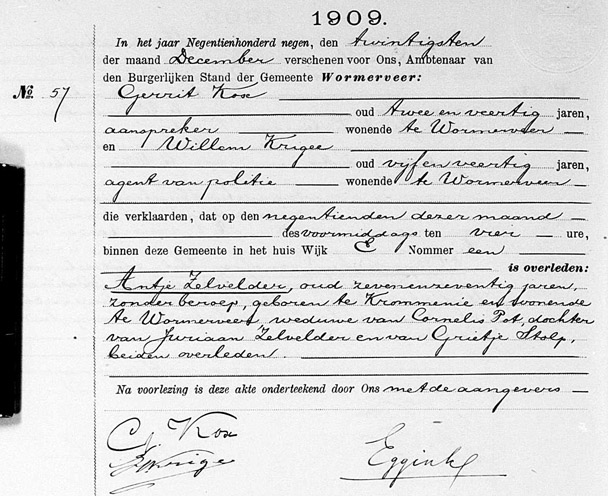 1909.
In het jaar Negentienhonderd negen, den twintigsten
der maand December verschenen voor Ons, Ambtenaar van
den Burgerlijken Stand der Gemeente Wormerveer:
No. 57 Gerrit Kox
oud twee en veertig jaren,
aanspreker wonende te Wormerveer
en Willem Krigee
oud vijf en veertig jaren,
agent van politie wonende te Wormerveer
die verklaarden, dat op den negentienden dezer maand
des voormiddags ten vier ure,
binnen deze Gemeente in het huis Wijk E Nommer een
is overleden:
Antje Zelvelder, oud zevenenzeventig jaren,
zonder beroep, geboren te Krommenie en wonende
te Wormerveer, weduwe van Cornelis Pot, dochter
van Juriaan Zelvelder en van Grietje Stolp,
beiden overleden.
Na voorlezing is deze akte onderteekend door Ons met de aangevers
G. Kox
W Krigee
Eggink